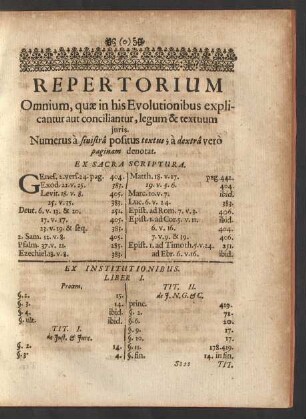 (o)
REPERTORIUM
Omnium, quæ in his Evolutionibus expli-
cantur aut conciliantur, legum & textuum
juris.
Numerus à sinistrâ positus textus; à dextrâ verò
paginam denotat.
EX SACRA SCRIPTURA.
GEnes. 2. vers. 24. pag. 404.
Exod. 22. v. 25. 385.
Levit. 15. v. 8. 385.
25. v. 35. 385.
Deut. 6. v. 13. & 20. 251.
17. v. 17. 405.
23. v. 19. & seq. 385.
2. Sam. 12. v. 8. 405.
Psalm. 37. v. 21. 385.
Ezechiel. 18. v. 8. 385.
Matth. 15. v. 27. pag. 441.
19. v. 5. 6. 404.
Marc. 10. v. 7. ibid.
Luc. 6. v. 24. 385.
Epist. ad Rom. 7. v. 3. 406.
Epist. 1. ad Cor. 5. v. 11. ibid.
6. v. 16. 404.
7. v. 9. & 19. 406.
Epist. 1. ad Timoth. 5. v. 14. 251.
ad Ebr. 6. v. 16. ibid.
EX INSTITUTIONIBUS.
LIBER I.
Proœm.
§. 2. 15.
§. 3. 14.
§. 4. ibid.
§. ult. ibid.
TIT. I.
de Just. & Jure.
§. 2. 14.
§. 3. 4.
TIT. II.
de J. N. G. & C.
princ. 419.
§. 2. 71.
§. 6. 20.
§. 9. 17.
§. 10. 17.
§. 11. 178. 419.
§. fin. 14. in fin.
TIT.